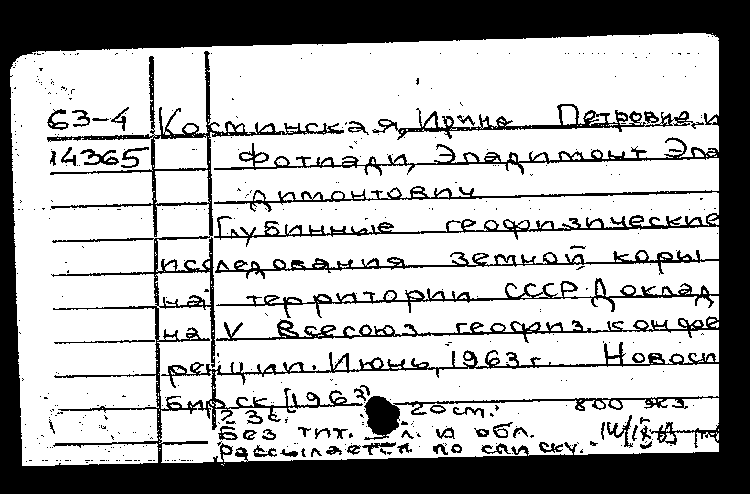 63-4 Костинская, Ирина Петровна и
14365 Фотиади, Эпаминонт Эпа
Глубинные геофизические
исследования земной коры
на территории СССР. Доклад
на V Всесоюз. геофиз. конфе
ренции. Июнь, 1963 г. Новоси
бирск, [1963]
23 с. 20 см. 800 экз
Без тит. л. и обл.
Рассылается по списку.